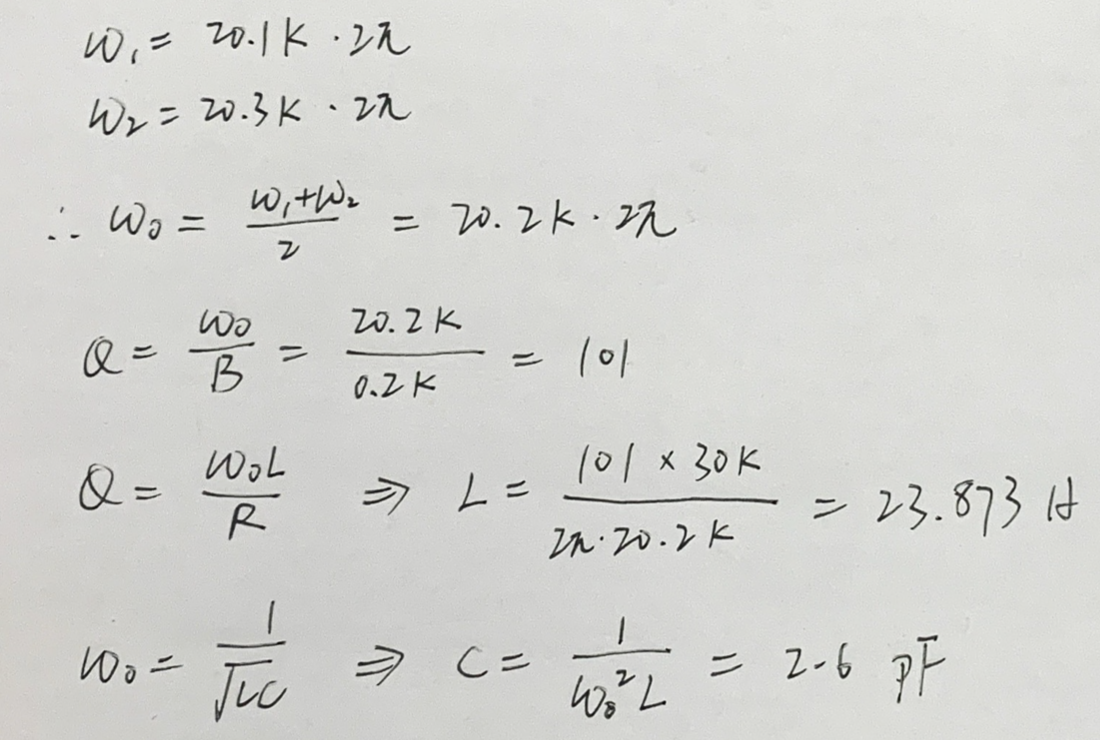 ω₁ = 20.1K · 2π
ω₂ = 20.3K · 2π
∴ ω₀ = (ω₁+ω₂)/2 = 20.2K · 2π
Q = ω₀/B = 20.2K/0.2K = 101
Q = ω₀L/R ⇒ L = (101 × 30K)/(2π·20.2K) = 23.873 H
ω₀ = 1/√LC ⇒ C = 1/(ω₀²L) = 2.6 pF